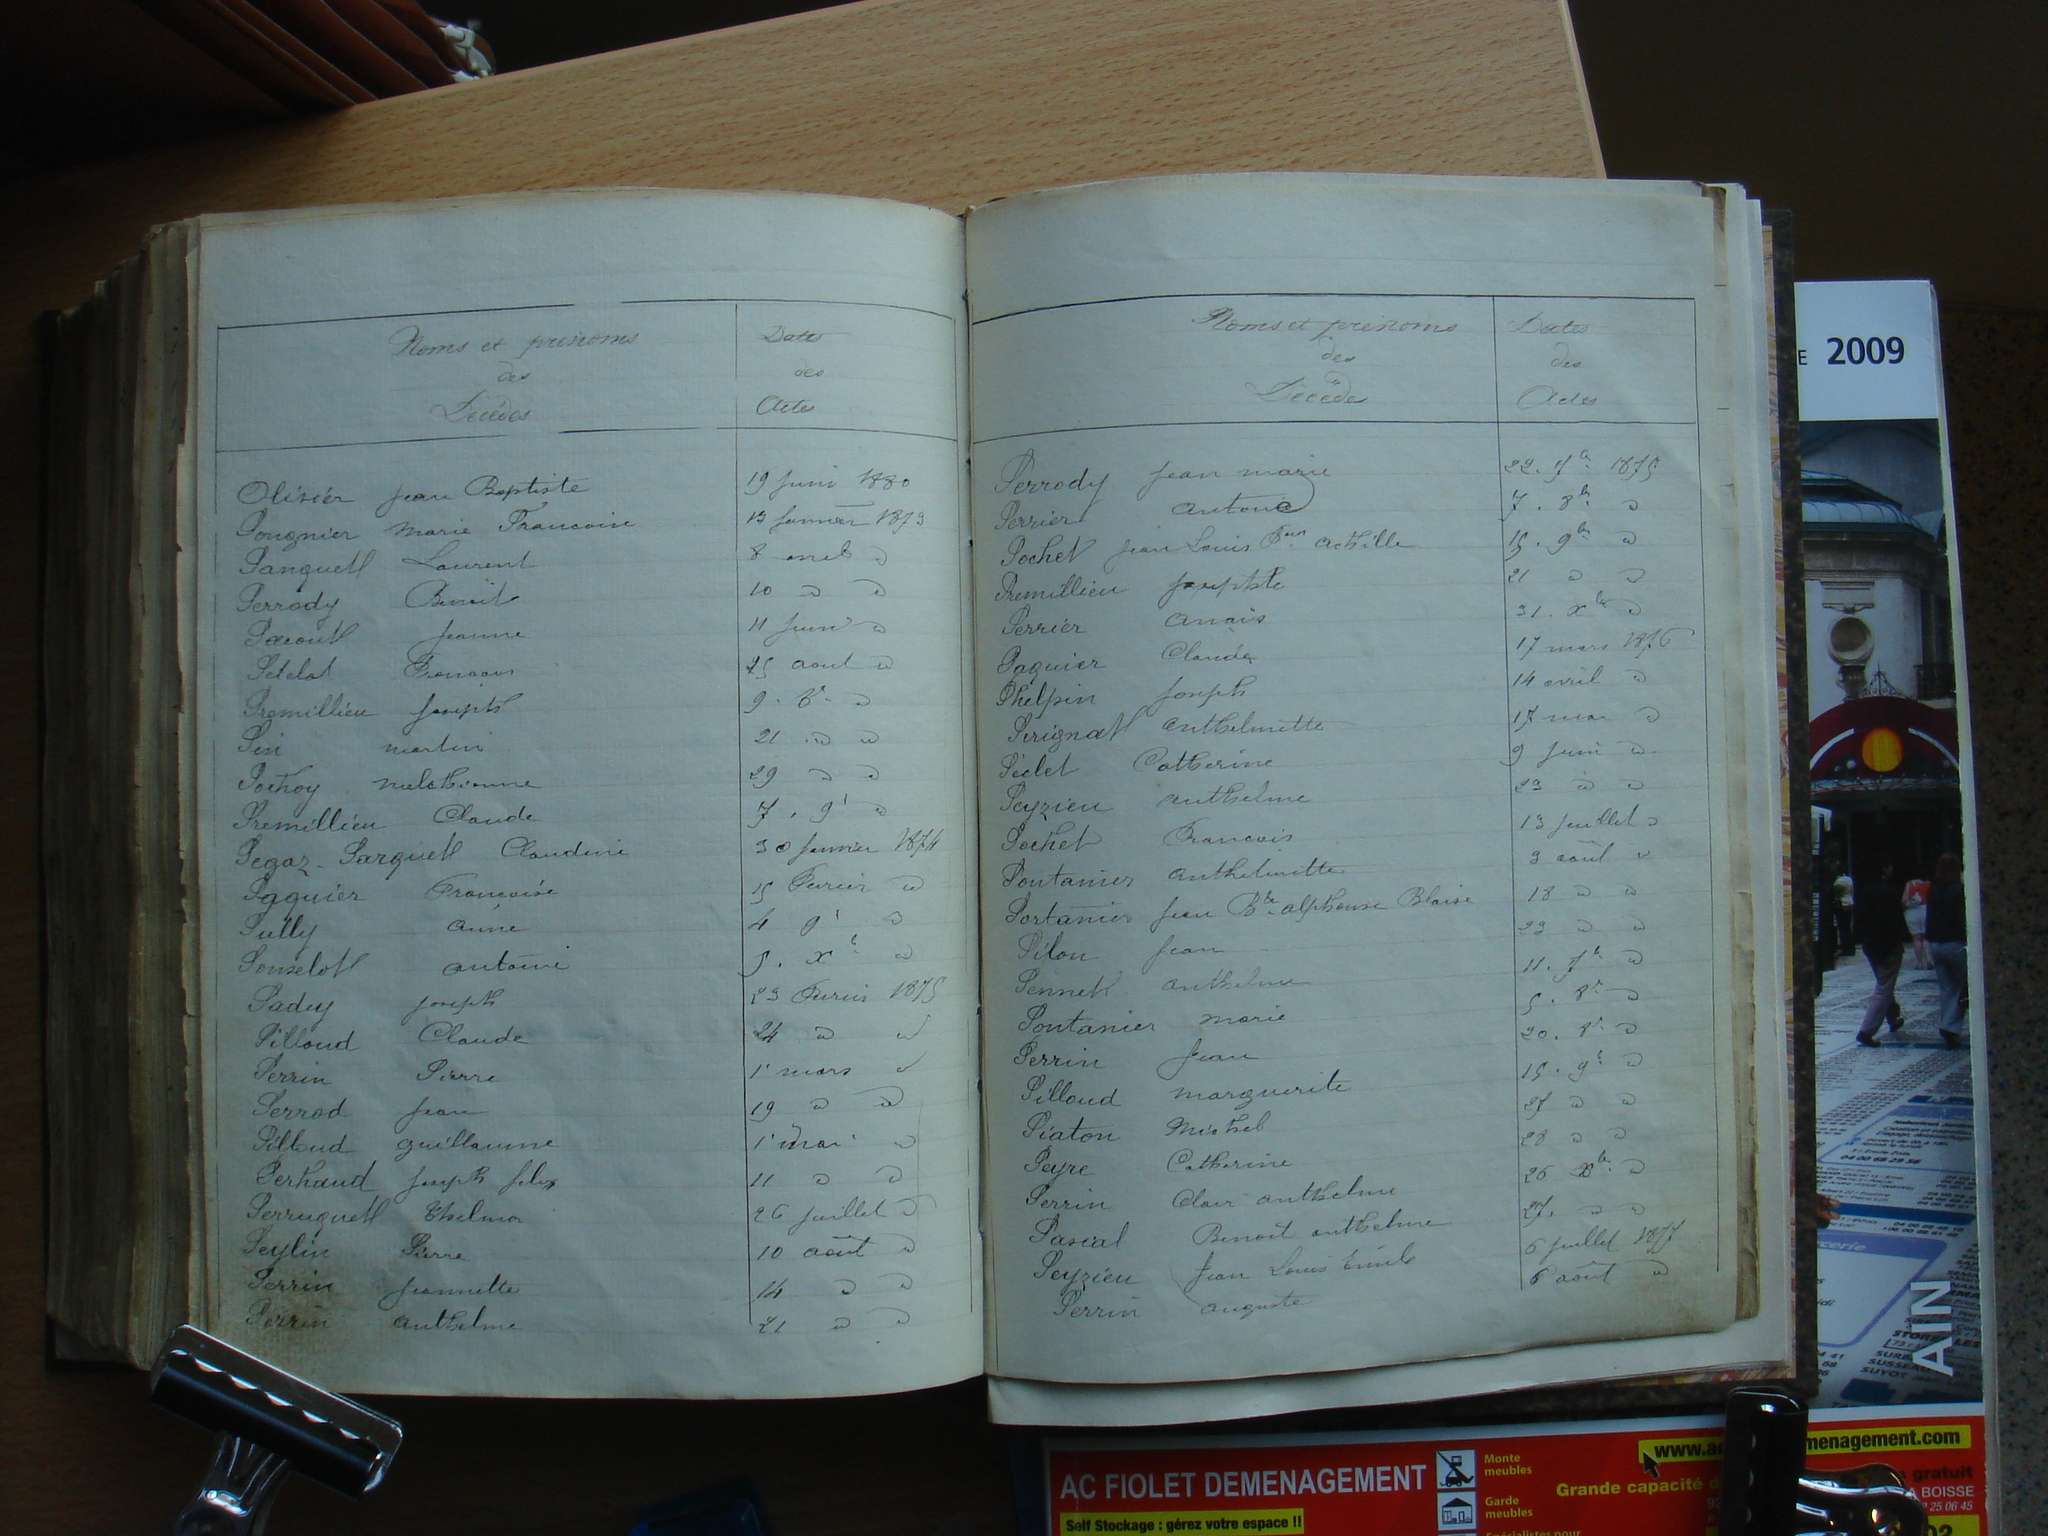 Noms et prénoms
des
Décédés
Dates
des
Actes
Olivier Jean Baptiste 19 Juin 1880
Pougnier Marie Francoise 13 Janvier 1873
Panquett Laurent 8 avril "
Perrody Benoit 10 " "
Jeanne 11 Juin "
Francois 25 aout "
Premillieu Joseph 9. 8r. "
Pin martin 21 " "
Pochoy melchionne 29 " "
Premillieu Claude 7. 9r "
Pegaz-Parquett Claudine 30 Janvier 1874
Paquier Françoise 15 Fevrier "
Pully anne 4 9r "
Ponselott antoine 5. Xe "
Padey Joseph 23 Fevrier 1875
Pilloud Claude 24 " "
Perrin Pierre 1r mars "
Perrod Jean 19 " "
Pilloud guillaume 1r mai "
Perhaud Joseph felix 11 " "
Perruquett thelmor 26 Juillet "
Peylin Pierre 10 août "
Perrin Jeannette 14 " "
Perrin anthelme 21 " "
Noms et prénoms
des
Décédés
Dates
des
Actes
Perrody Jean marie 22. 7e 1875
Perrier antoine 7. 8b. "
Pochet Jean Louis achille 15. 9b "
Premillieu Josephte 21 " "
Perrier anais 31. Xb "
Paquier Claude 17 mars 1876
Phelpin Joseph 14 avril "
Pirignatt anthelmette 17 mai "
Péclet Catherine 9 Juin "
Peyzieu anthelme 23 " "
Pochet Francois 13 Juillet "
Pontanier anthelmette 3 août "
Portanier Jean Bte alphonse Blaise 18 " "
Pilon Jean 23 " "
Pennett anthelme 11. 7b "
Pontanier marie 5. 8r "
Perrin Jean 20. 8r "
Pilloud marguerite 15. 9e "
Piaton Michel 27 " "
Peyre Catherine 28 " "
Perrin Clair anthelme 26 Xbe "
Pascal Benoit anthelme 27. " "
Peyzieu Jean Louis Emile 6 Juillet 1877
Perrin auguste 6 août "
E 2009
AIN
www.a menagement.com
AC FIOLET DEMENAGEMENT
Monte
meubles
Garde
meubles
Grande capacité d
gratuit
A BOISSE
2 25 06 45
Self Stockage : gérez votre espace !!